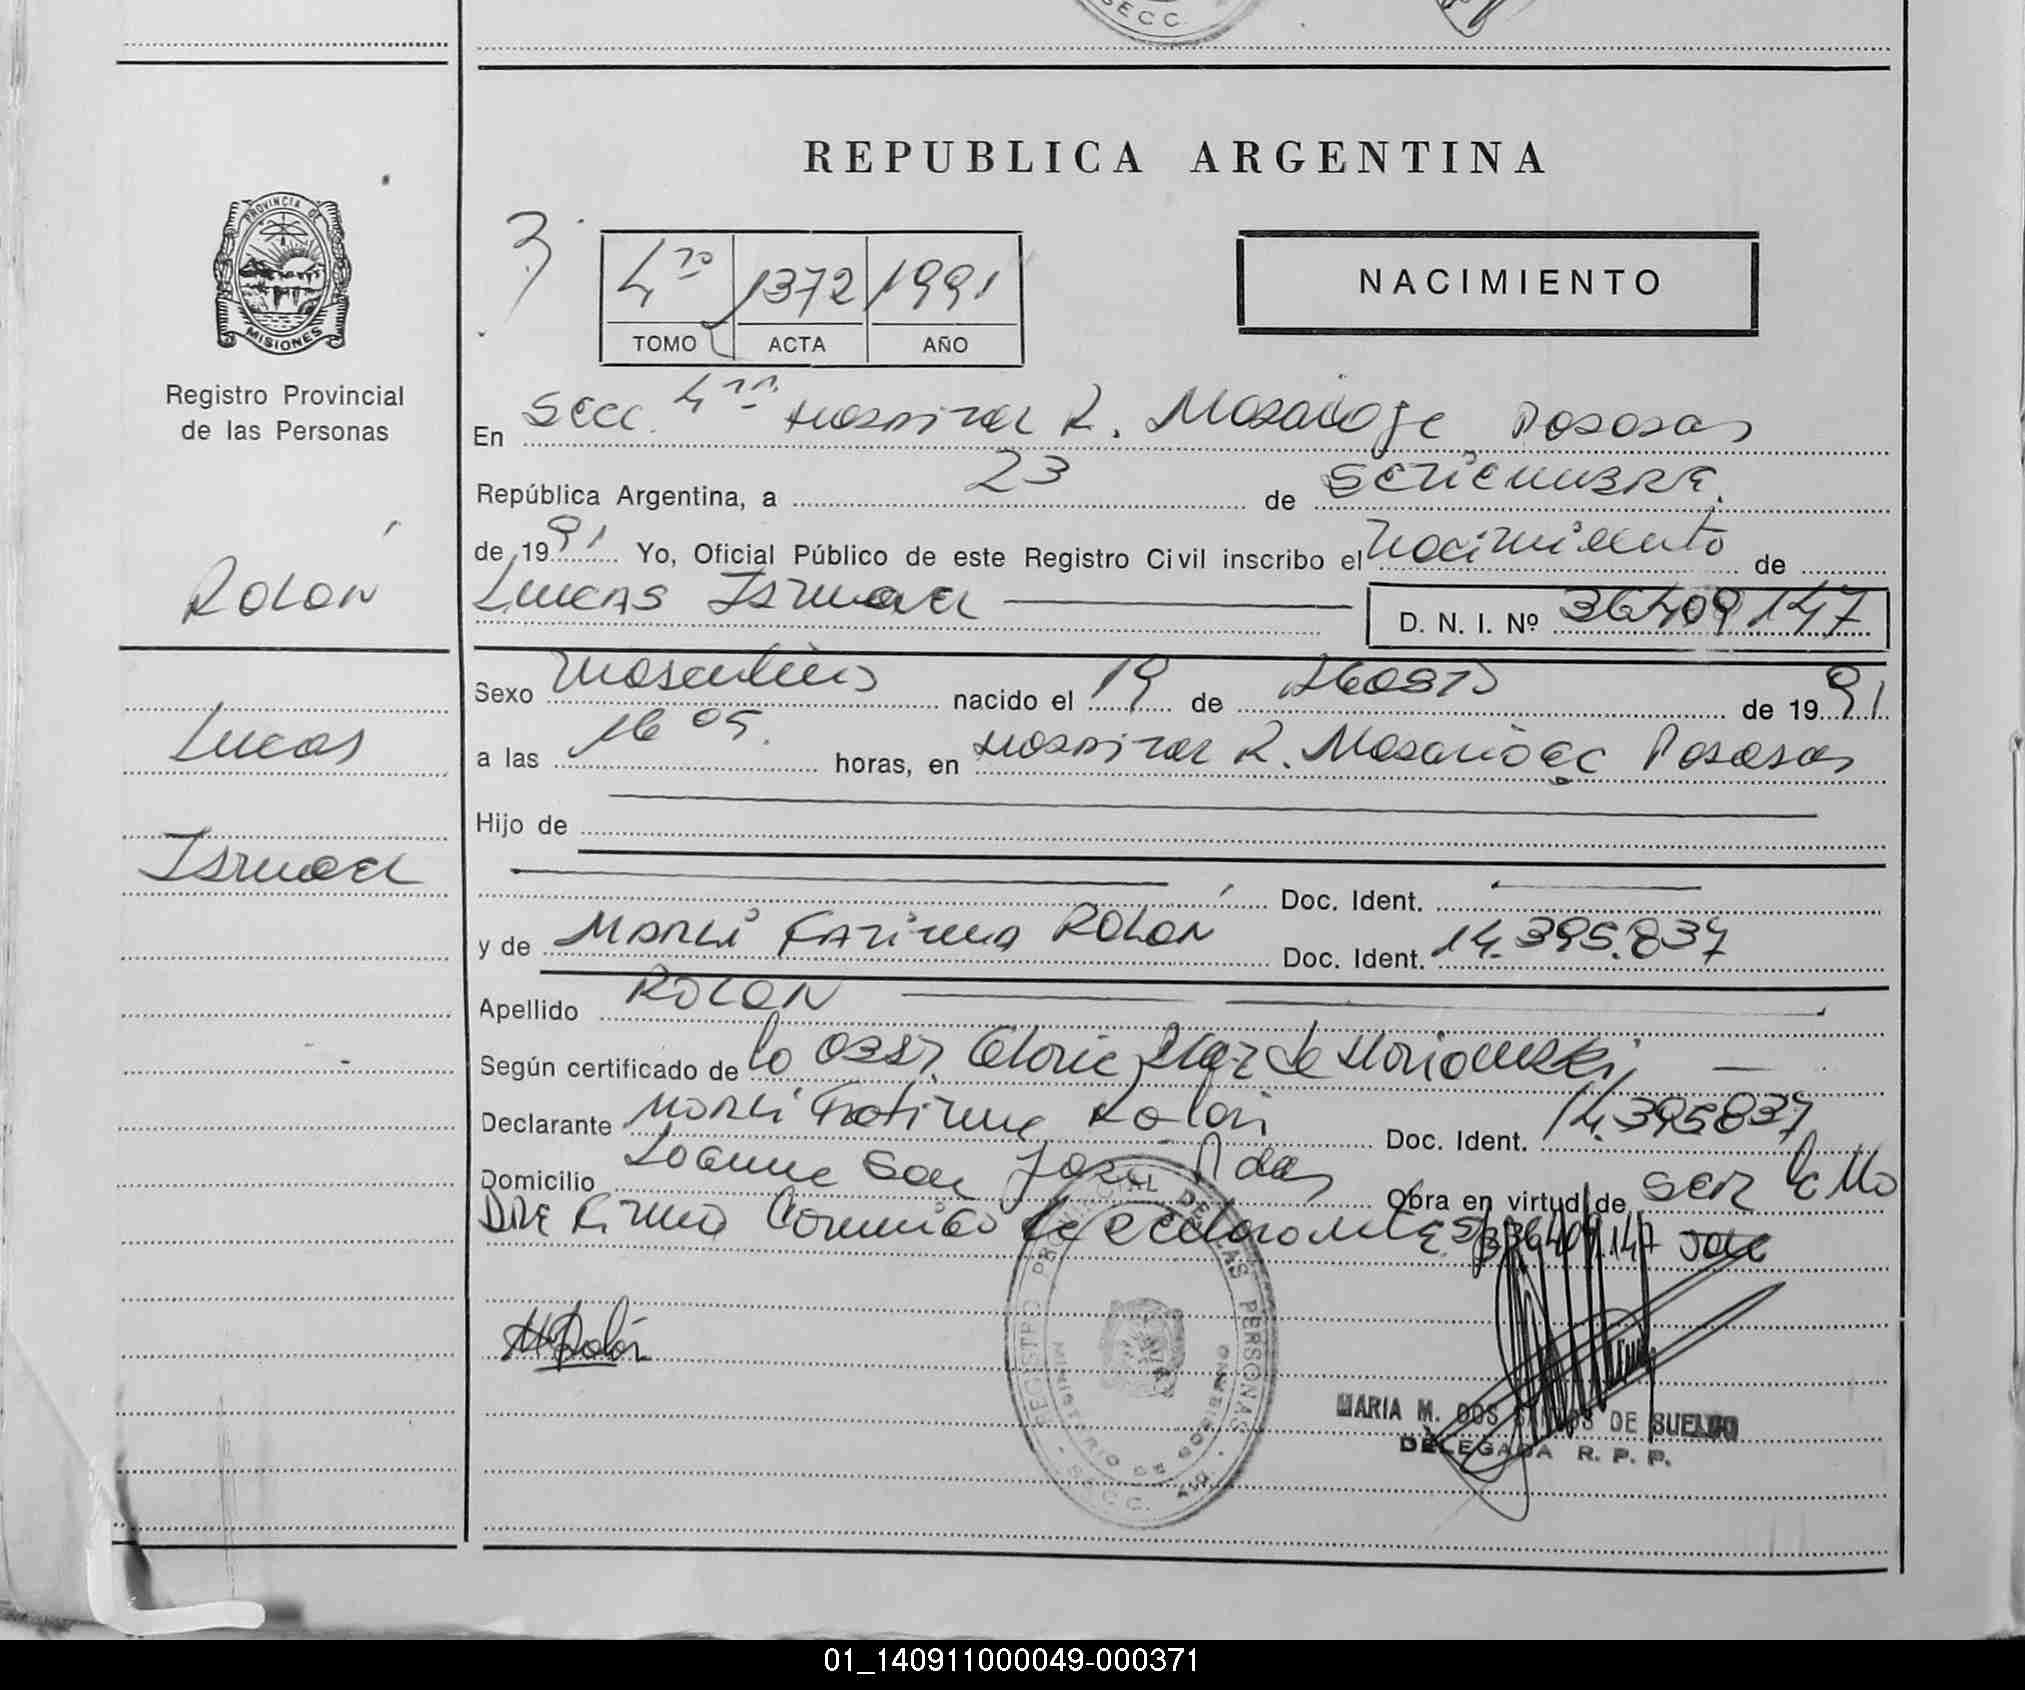 SECC.
REPUBLICA ARGENTINA
PROVINCIA DE
MISIONES
Registro Provincial
de las Personas
3
4to 1372 1991
TOMO ACTA AÑO
NACIMIENTO
En Secc. 4ta Hospital R. Madariaga Posadas
República Argentina, a 23 de SETIEMBRE.
de 1991 Yo, Oficial Público de este Registro Civil inscribo el Nacimiento de
Lucas Ismael D. N. I. Nº 36409147
Rolón
Lucas
Ismael
Sexo Masculino nacido el 19 de Agosto de 1991
a las 16 05. horas, en Hospital R. Madariaga Posadas
Hijo de
Doc. Ident.
y de MARLI FATIMA ROLÓN Doc. Ident. 14.395.837
Apellido ROLON
Según certificado de la Obst. Gloria de
Declarante Marli Fatima Rolón Doc. Ident. 14.395837
Domicilio San Obra en virtud de ser la Ma
DRE Firma declarante 36409.147
M Rolón
REGISTRO PROVINCIAL DE LAS PERSONAS
MINISTERIO DE GOBIERNO
SECC. 4ta
MARIA M. DOS SANTOS DE SUELDO
DELEGADA R. P. P.
01_140911000049-000371